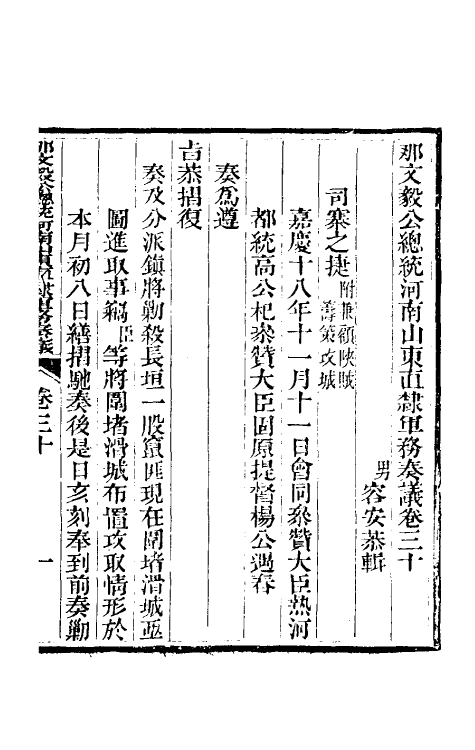 那文毅公總統河南山東直隸軍務奏議卷三十
男容安恭輯
司寨之捷附剿礮陜賊籌策攻城
嘉慶十八年十一月十一日會同叅贊大臣熱河
都統高公杞叅贊大臣固原提督楊公遇春
奏爲遵
旨恭摺復
奏及分派鎮將勦殺長垣一股竄匪現在圍堵滑城亟
圖進取事竊臣等將圍堵滑城布置攻取情形於
本月初八日繕摺馳奏後是日亥刻奉到前奏勦
那文毅公總統河南山東直隸軍務奏議
卷三十
一